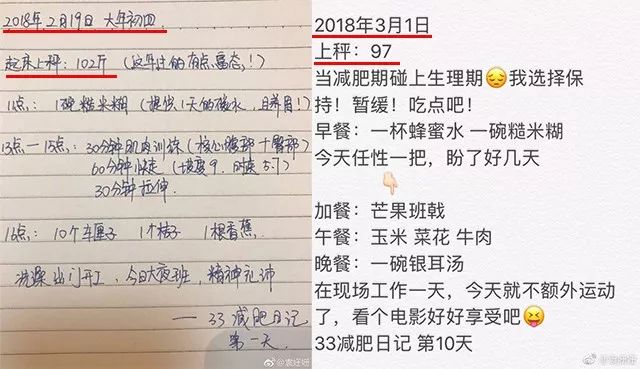 2018年2月19日 大年初四
起床上秤：102斤（这年过的有点富态！）
11点：1碗糙米糊（提供1天的碳水，且养胃！）
13点—15点：30分钟肌肉训练（核心腹部+臀部）
60分钟快走（坡度9，时速5.7）
30分钟拉伸。
16点：10个车厘子 1个桔子 1根香蕉
洗澡出门开工，今日大夜班，精神充沛
——33减肥日记
第一天
@袁姗姗
2018年3月1日
上秤：97
当减肥期碰上生理期😔我选择保
持！暂缓！吃点吧！
早餐：一杯蜂蜜水 一碗糙米糊
今天任性一把，盼了好几天
👇🏻
加餐：芒果班戟
午餐：玉米 菜花 牛肉
晚餐：一碗银耳汤
在现场工作一天，今天就不额外运动
了，看个电影好好享受吧😝
33减肥日记 第10天